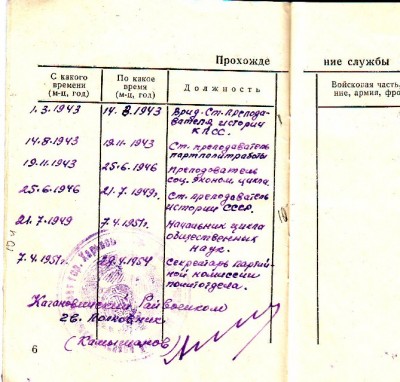 Прохожде ние службы
С какого времени (м-ц, год)
По какое время (м-ц, год)
Должность
Войсковая часть,
ние, армия, фро
1.3.1943 14.8.1943 Врид-Ст. препода-
вателя истории
КПСС.
14.8.1943 19.11.1943 Ст. преподаватель
партполитработы
19.11.1943 25.6.1946 Преподаватель
соц. эконом. цикла.
25.6.1946 21.7.1949г. Ст. преподаватель
истории СССР.
21.7.1949 7.4.1951г. Начальник цикла
общественных
наук.
7.4.1951г. 29.4.1954 Секретарь партий-
ной комиссии
политотдела.
Кагановичский Райвоенком
гв. Полковник
(Камышанов)
6